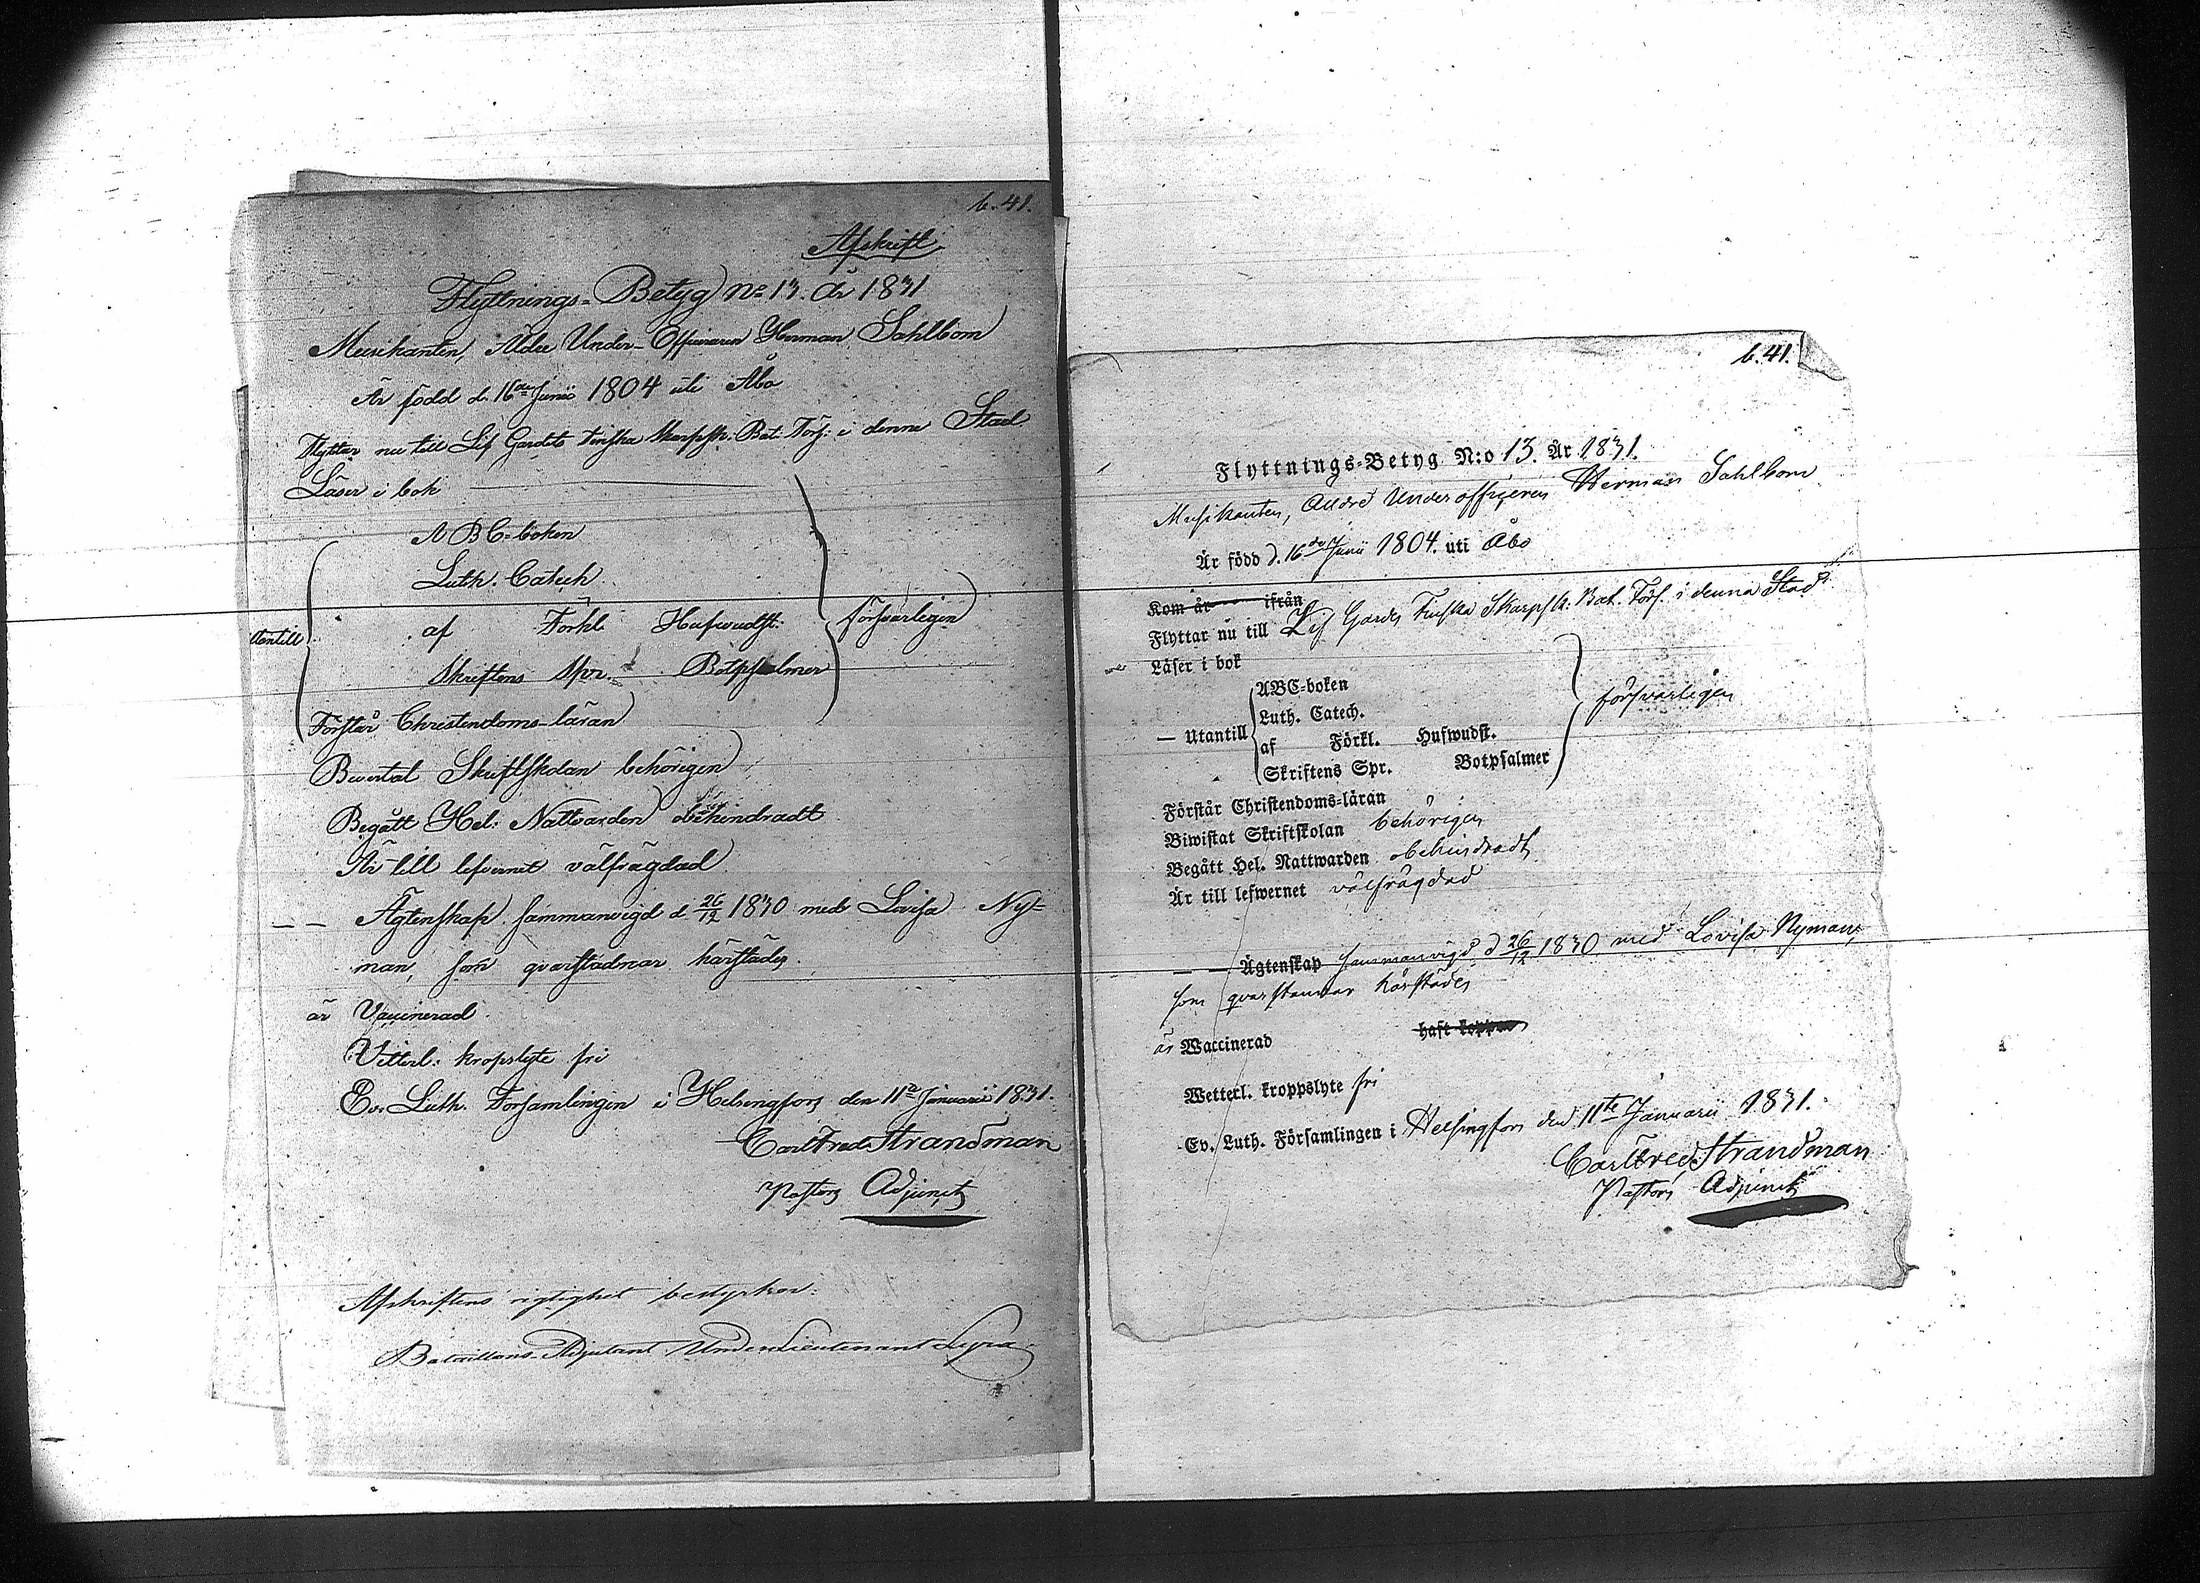 b. 41.
Afskrift
Flyttnings-Betyg No 13. År 1831
Musikanten, Äldre Under-Officeraren Herman Sahlbom
Är född d. 16de Junii 1804 uti Åbo
Flyttar nu till Lif Gardets Finska Skarpsk: Bat: Förs: i denna Stad
Läser i bok
ABC-boken
Luth. Catech.
utantill af Förkl. Hufwudst. försvarligen
Skriftens Spr. Botpsalmer
Förstår Christendoms-läran
Bivistat Skriftskolan behörigen
Begått Hel: Nattvarden obehindradt
Är till lefvernet välfrägdad
— — Ägtenskap sammanvigd d. 26/12 1830 med Lovisa Ny-
man, som qvarstadnar härstädes.
är Vaccinerad
Vitterl: kropslyte fri
Ev. Luth. Församlingen i Helsingfors den 11te Januarii 1831.
Carl Fred. Strandman
Pastors Adjunct
Afskriftens rigtighet bestyrker:
Bataillons-Adjutant Underlieutenant
b. 41.
Flyttnings-Betyg N:o 13. År 1831.
Musikanten, Äldre Underofficeren Herman Sahlbom
Är född d. 16de Junii 1804. uti Åbo
Kom år ifrån
Flyttar nu till Lif Gardes Finska Skarpsk. Bat. Förs. i denna Stad
Läser i bok
ABC-boken
Luth. Catech.
— Utantill af Förkl. Hufwudst. försvarligen
Skriftens Spr. Botpsalmer
Förstår Christendoms-läran
Biwistat Skriftskolan behörigen
Begått Hel. Nattwarden obehindradt
Är till lefwernet välfrägdad
— — Ägtenskap sammanvigd d 26/12 1830 med Lovisa Nyman,
som qvarstannar härstädes
är Waccinerad haft koppor
Wetterl. kroppslyte fri
Ev. Luth. Församlingen i Helsingfors den 11te Januarii 1831.
Carl Fred. Strandman
Pastors Adjunct